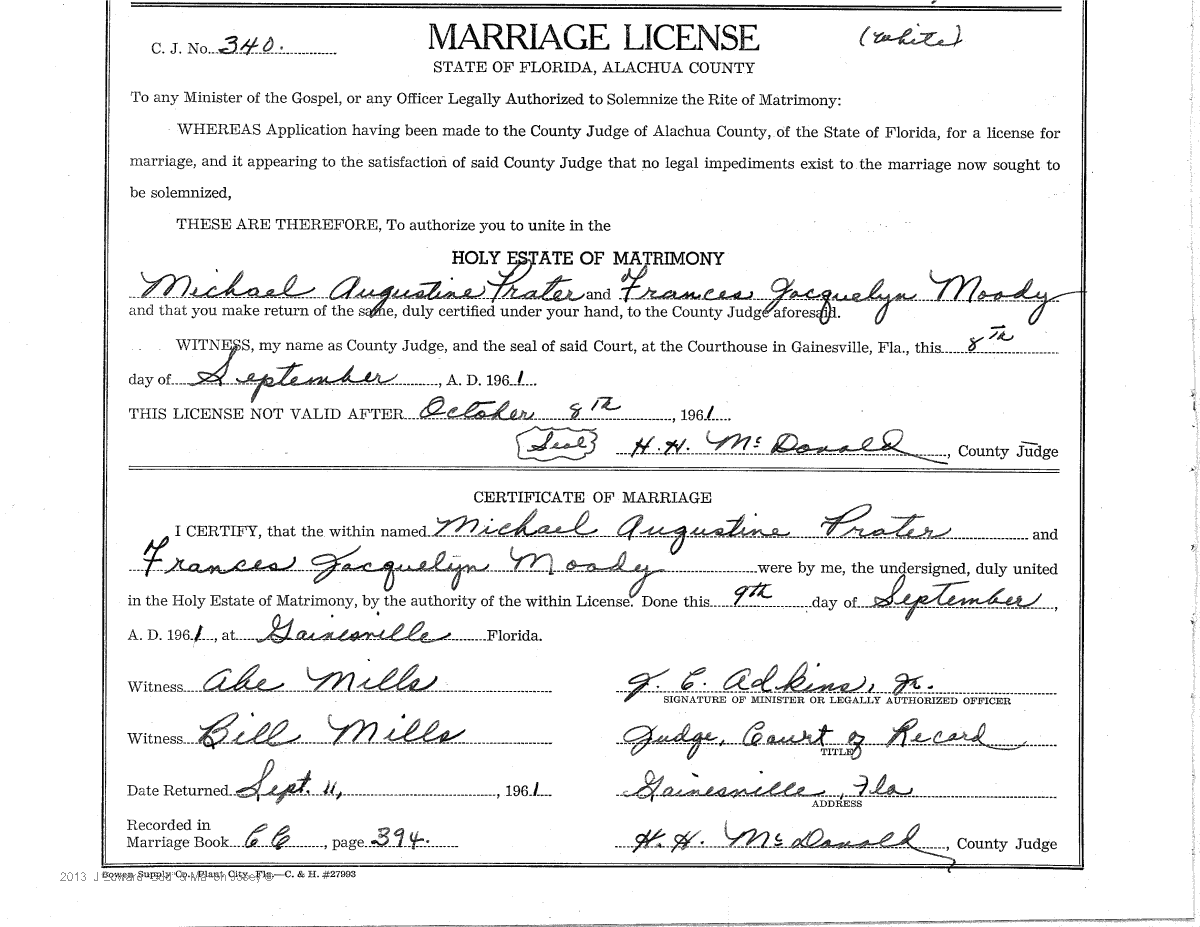 C. J. No. 340. MARRIAGE LICENSE (White)
STATE OF FLORIDA, ALACHUA COUNTY
To any Minister of the Gospel, or any Officer Legally Authorized to Solemnize the Rite of Matrimony:
WHEREAS Application having been made to the County Judge of Alachua County, of the State of Florida, for a license for
marriage, and it appearing to the satisfaction of said County Judge that no legal impediments exist to the marriage now sought to
be solemnized,
THESE ARE THEREFORE, To authorize you to unite in the
HOLY ESTATE OF MATRIMONY
Michael Augustine Prater and Frances Jacquelyn Moody
and that you make return of the same, duly certified under your hand, to the County Judge aforesaid.
WITNESS, my name as County Judge, and the seal of said Court, at the Courthouse in Gainesville, Fla., this 8th
day of September, A. D. 1961
THIS LICENSE NOT VALID AFTER October 8th, 1961
(Seal) H. H. McDonald, County Judge
CERTIFICATE OF MARRIAGE
I CERTIFY, that the within named Michael Augustine Prater and
Frances Jacquelyn Moody were by me, the undersigned, duly united
in the Holy Estate of Matrimony, by the authority of the within License. Done this 9th day of September,
A. D. 1961, at Gainesville Florida.
Witness Abe Mills J. C. Adkins, Jr.
SIGNATURE OF MINISTER OR LEGALLY AUTHORIZED OFFICER
Witness Bill Mills Judge, Court of Record
TITLE
Date Returned Sept. 11, 1961 Gainesville, Fla
ADDRESS
Recorded in
Marriage Book CC, page 394. H. H. McDonald, County Judge
Bowen Supply Co., Plant City, Fla.—C. & H. #27993
2013 J